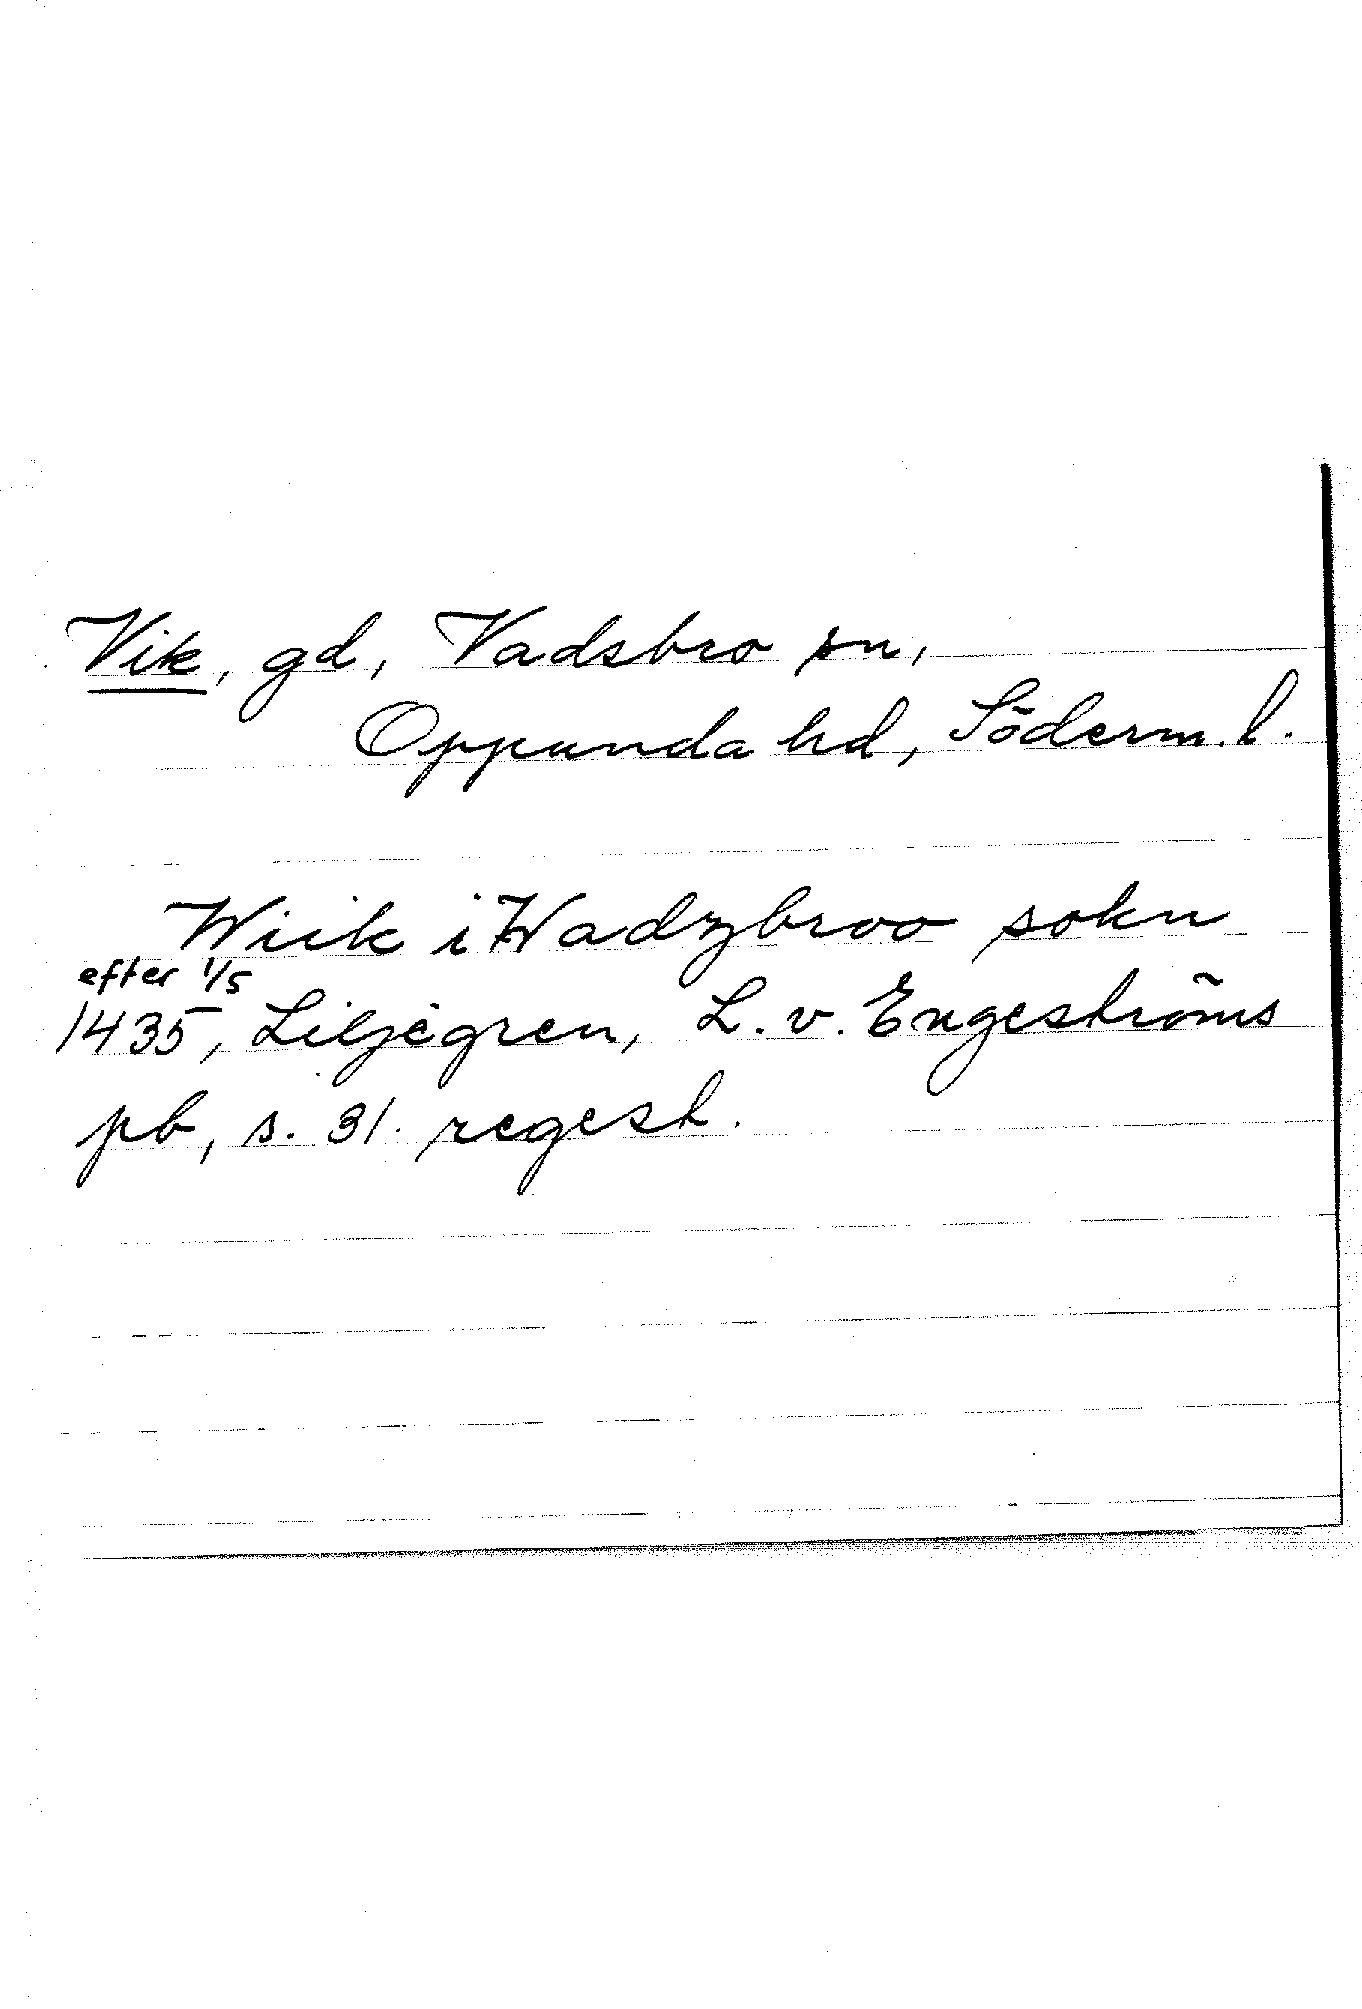 Vik, gd, Vadsbro sn,
Oppunda hd, Söderm. l.
Wiik i Wadzbroo sokn
efter 1/5
1435, Liljegren, L. v. Engeströms
pb, s. 31. regest.